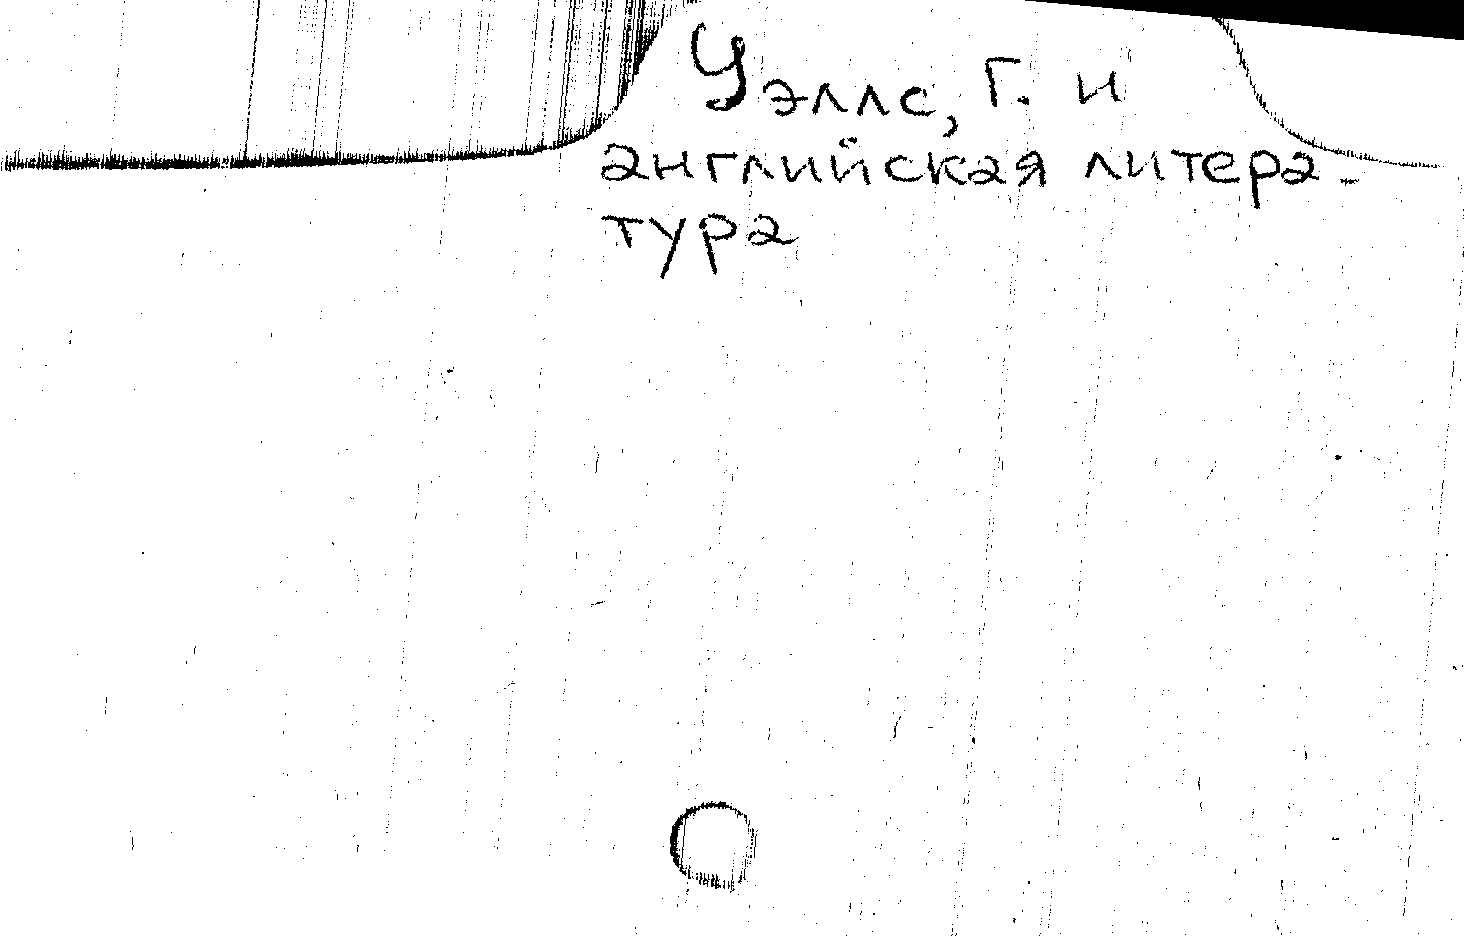 Уэллс, Г. и
английская литера-
тура